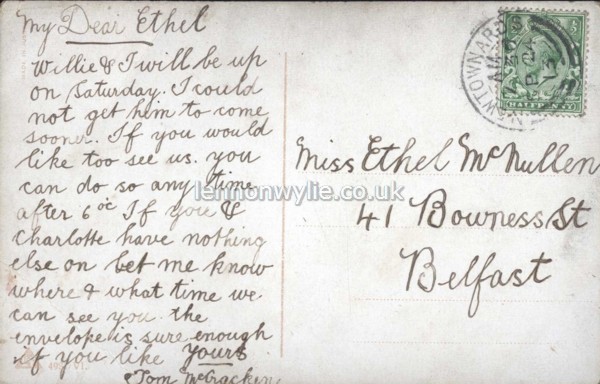 My Dear Ethel
Willie & I will be up
on Saturday. I could
not get him to come
sooner. If you would
like too see us. you
can do so any time
after 6 oc If you &
Charlotte have nothing
else on let me know
where & what time we
can see you the
envelope is sure enough
if you like Yours
Tom McCracken
Miss Ethel McMullen
41 Bowness St
Belfast
lennonwylie.co.uk
HALFPENNY